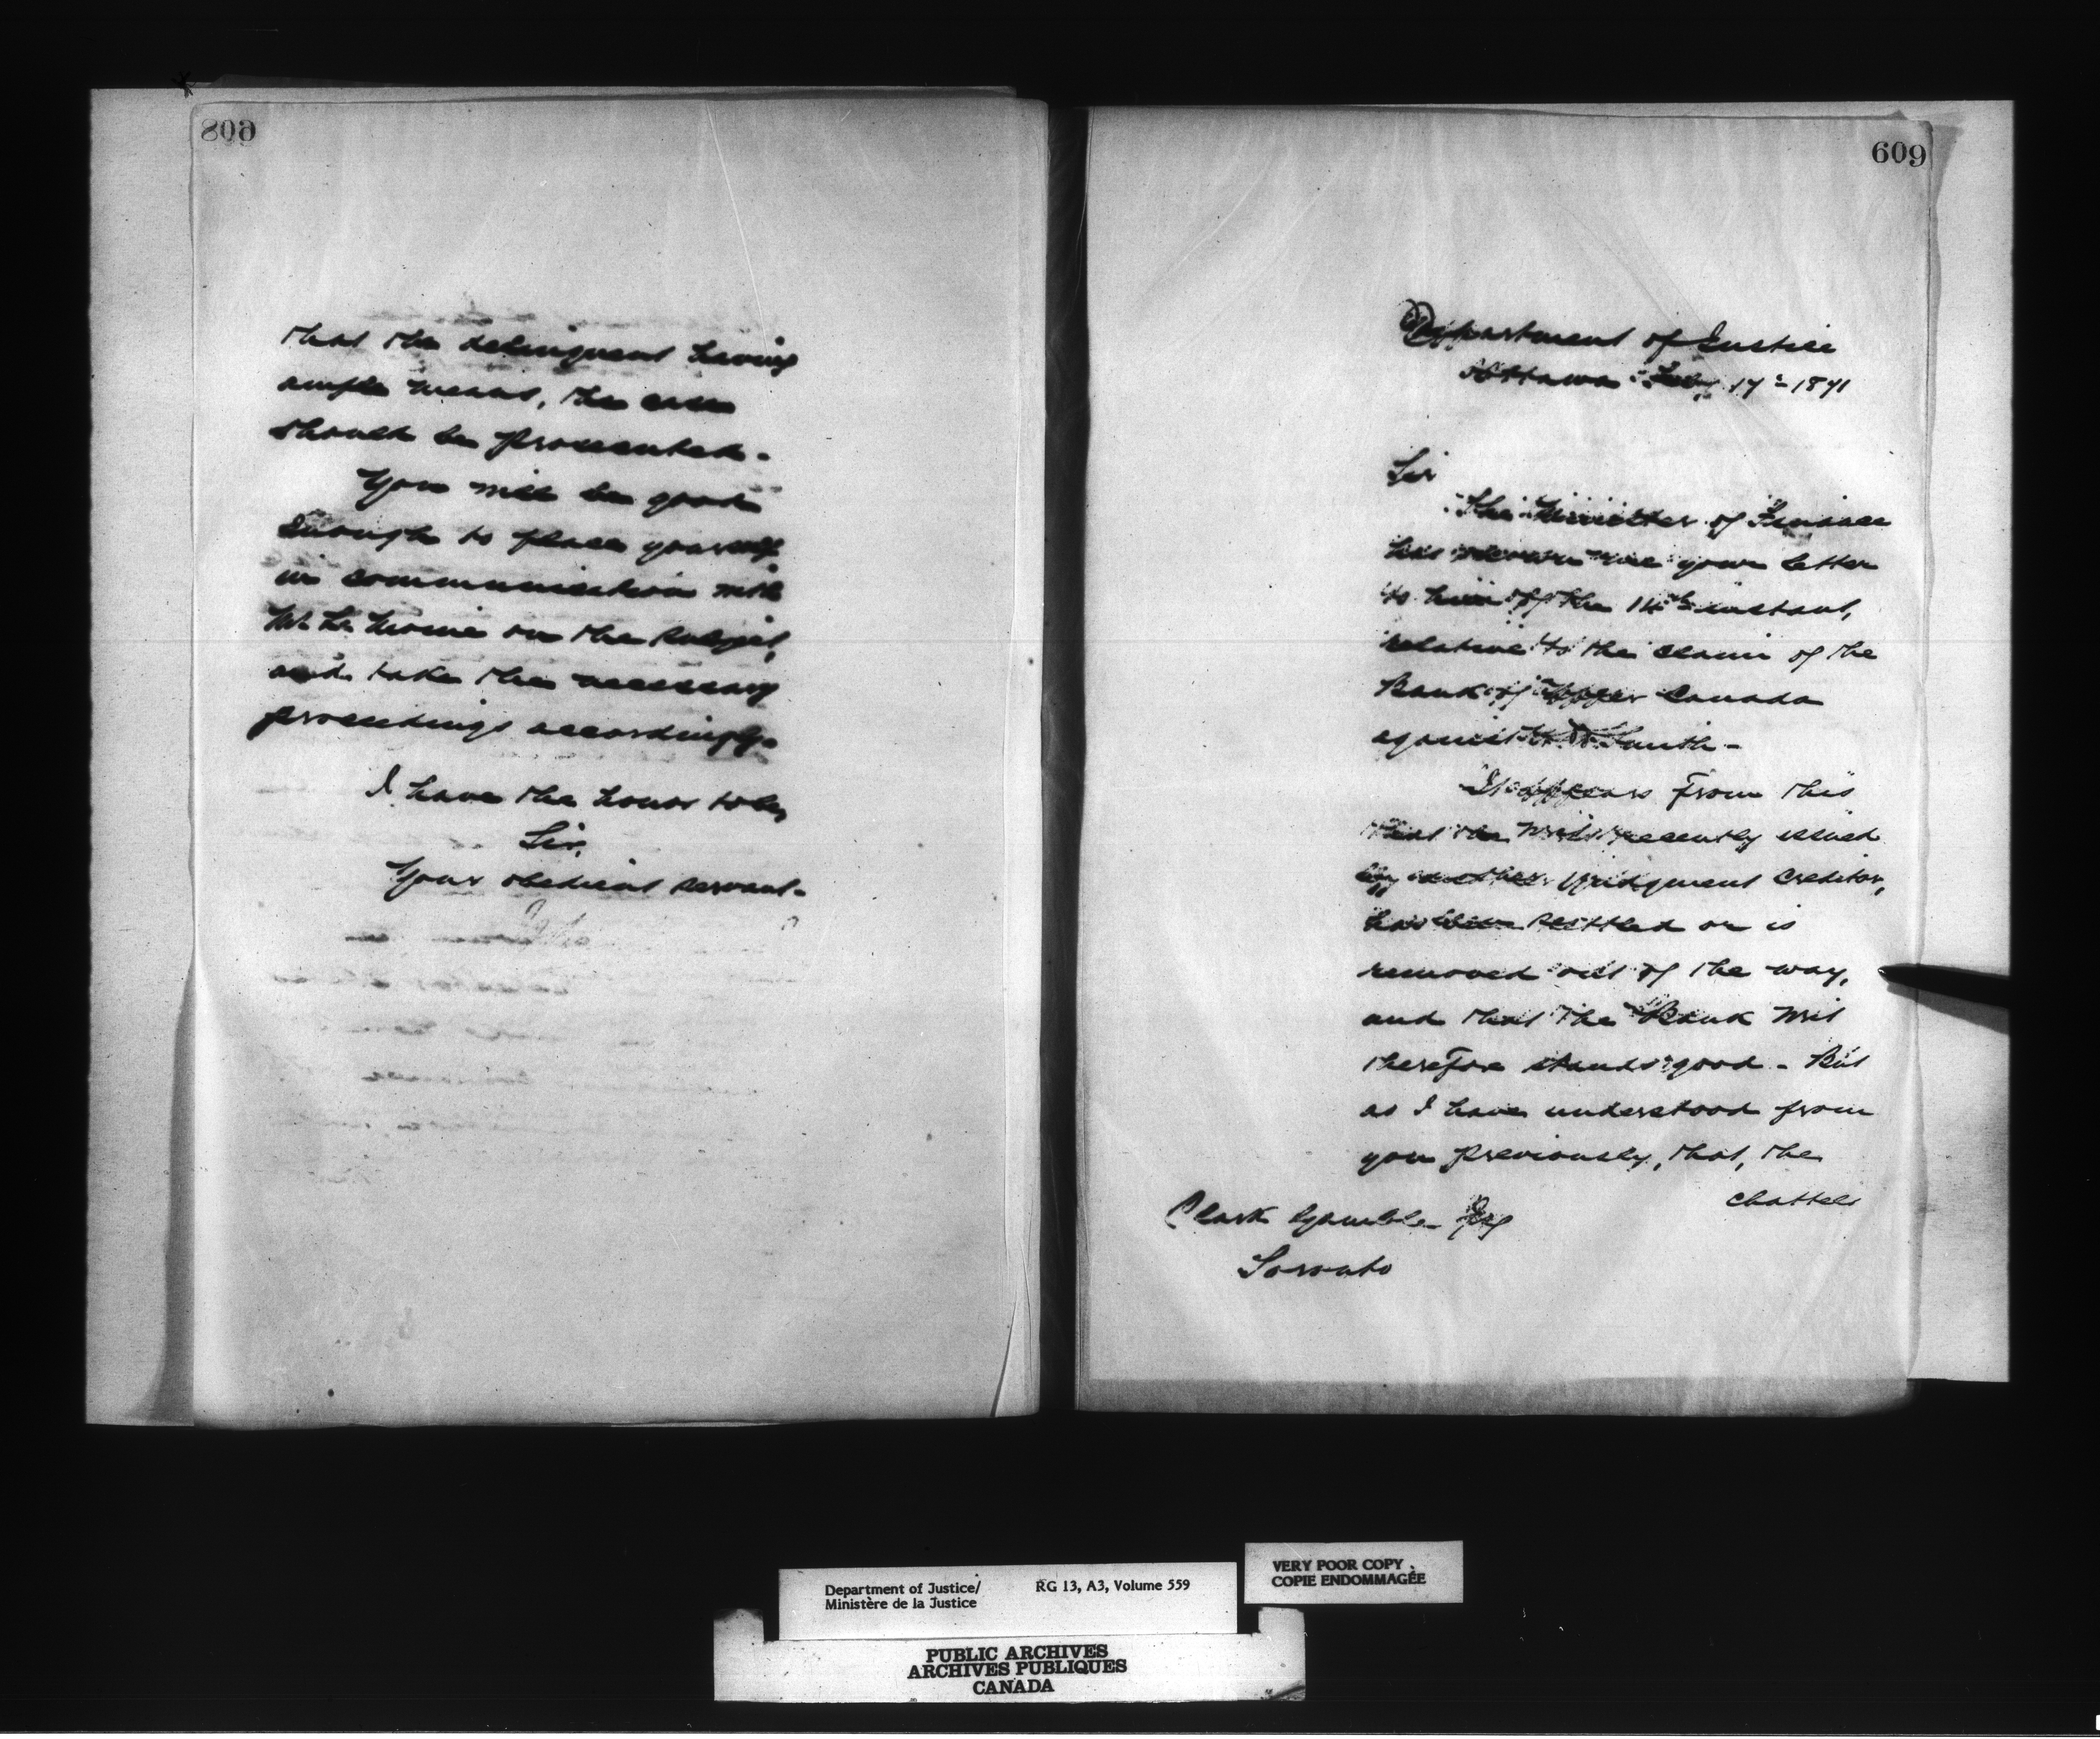 608
that the delinquent having
ample means, the case
should be prosecuted.
You will be good
enough to place yourself
in communication with
on the subject,
and take the necessary
proceedings accordingly.
I have the honor to be,
Sir,
Your obedient servant.
609
Department of Justice
Ottawa 17th 1871
Sir
The Minister of Finance
has shown me your letter
to him of the 14th instant,
relative to the claim of the
Bank of Upper Canada
against Smith -
It appears from this
that the Writ recently issued
by another judgment Creditor,
has been settled or is
removed out of the way,
and that the Bank Writ
therefore stands good - But
as I have understood from
you previously, that, the
chattels
Clark Gamble Esq
Toronto
Department of Justice/
Ministère de la Justice
RG 13, A3, Volume 559
VERY POOR COPY
COPIE ENDOMMAGÉE
PUBLIC ARCHIVES
ARCHIVES PUBLIQUES
CANADA